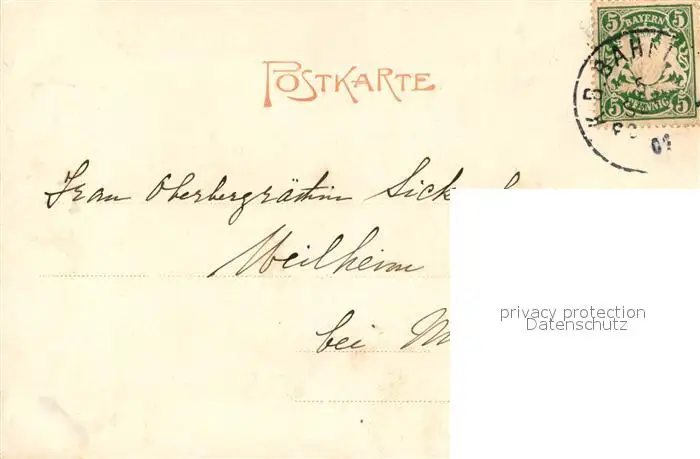 POSTKARTE
5 BAYERN 5
5 PFENNIG 5
BAHN
Frau Oberbergräthin Sick
Weilheim
bei M
privacy protection
Datenschutz